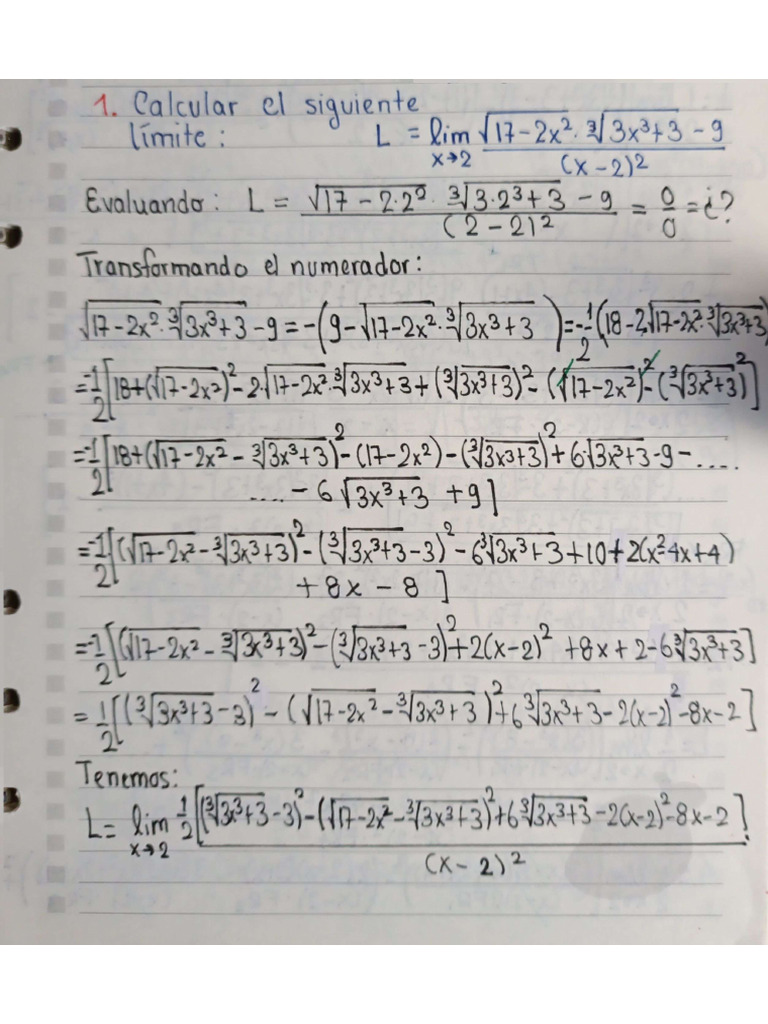 1. Calcular el siguiente
límite: L = lim x→2 (√(17-2x²) · ∛(3x³+3) - 9) / (x-2)²
Evaluando: L = (√(17-2·2²) · ∛(3·2³+3) - 9) / (2-2)² = 0/0 = ¿?
Transformando el numerador:
√(17-2x²) · ∛(3x³+3) - 9 = -(9 - √(17-2x²) · ∛(3x³+3)) = -1/2 (18 - 2√(17-2x²) · ∛(3x³+3))
= -1/2 [18 + (√(17-2x²))² - 2·√(17-2x²) · ∛(3x³+3) + (∛(3x³+3))² - (√(17-2x²))² - (∛(3x³+3))²]
= -1/2 [18 + (√(17-2x²) - ∛(3x³+3))² - (17-2x²) - (∛(3x³+3))² + 6·√(3x³+3) - 9 - ....
.... - 6√(3x³+3) + 9]
= -1/2 [(√(17-2x²) - ∛(3x³+3))² - (∛(3x³+3) - 3)² - 6∛(3x³+3) + 10 + 2(x²-4x+4)
+ 8x - 8]
= -1/2 [(√(17-2x²) - ∛(3x³+3))² - (∛(3x³+3) - 3)² + 2(x-2)² + 8x + 2 - 6∛(3x³+3)]
= 1/2 [(∛(3x³+3) - 3)² - (√(17-2x²) - ∛(3x³+3))² + 6∛(3x³+3) - 2(x-2)² - 8x - 2]
Tenemos:
L = lim x→2 1/2 [(∛(3x³+3) - 3)² - (√(17-2x²) - ∛(3x³+3))² + 6∛(3x³+3) - 2(x-2)² - 8x - 2] / (x-2)²